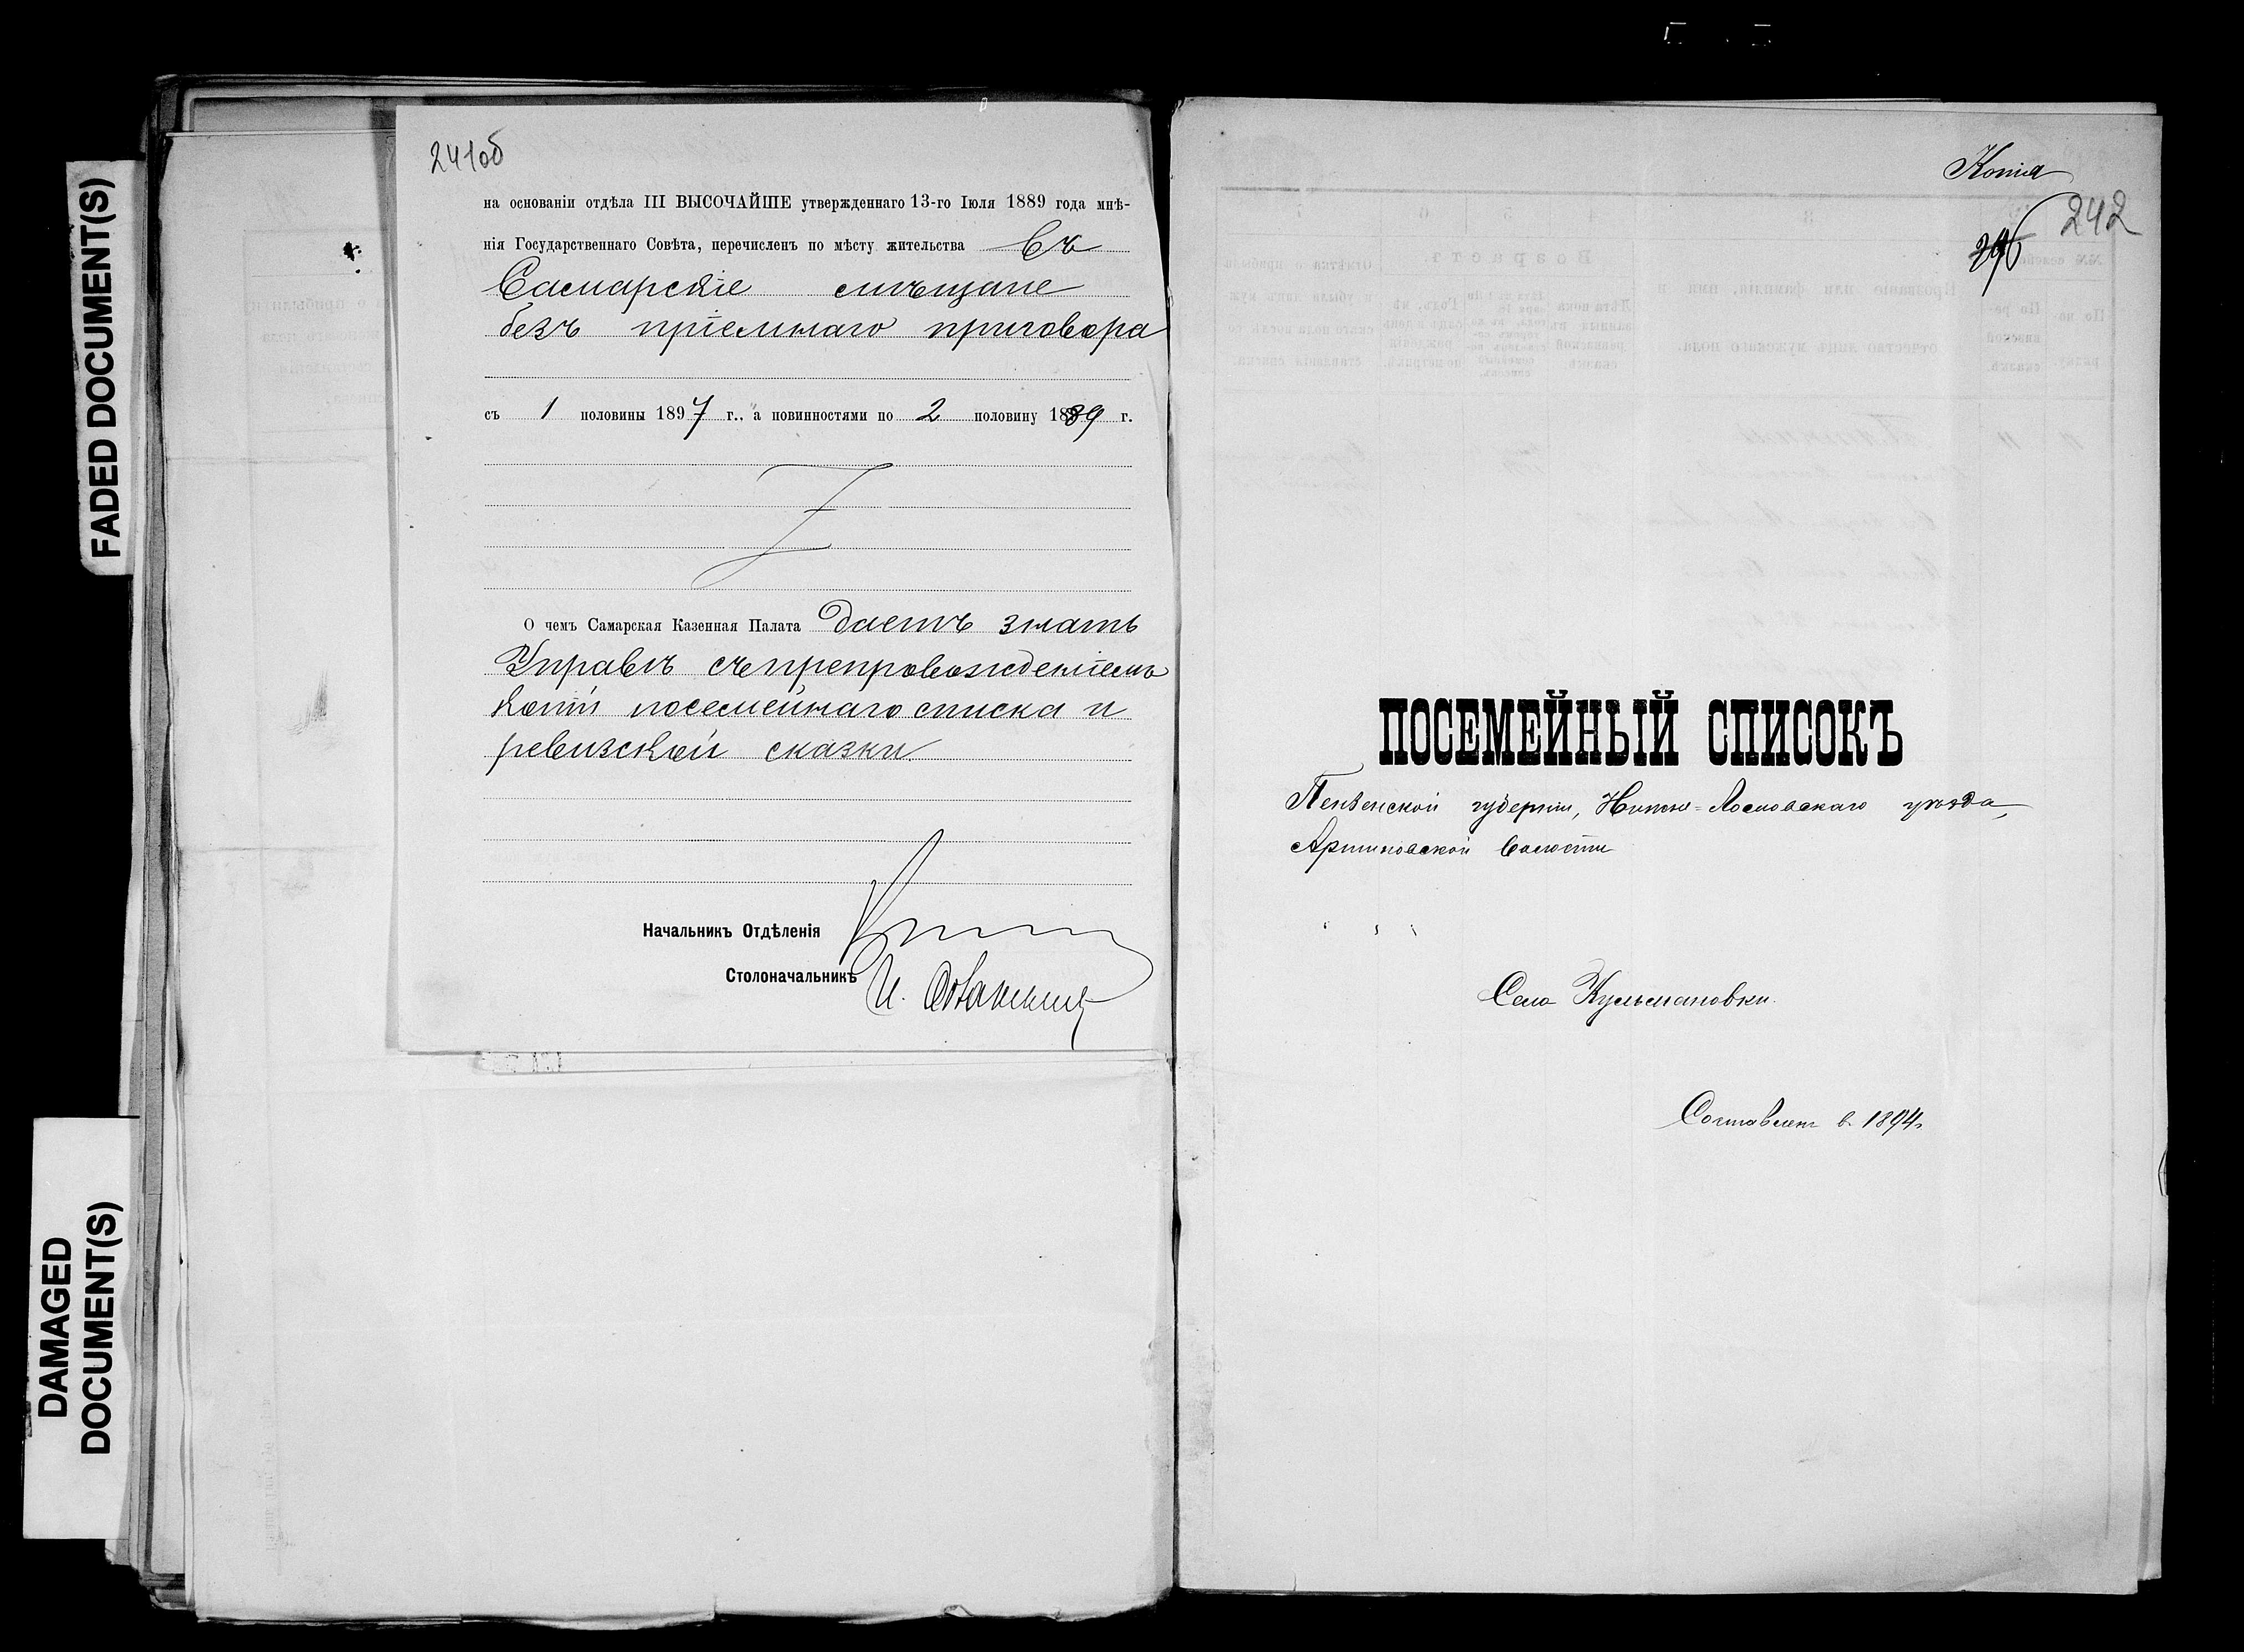 FADED DOCUMENT(S)
DAMAGED
DOCUMENT(S)
241об
на основаніи отдѣла III ВЫСОЧАЙШЕ утвержденнаго 13-го Іюля 1889 года мнѣ-
нія Государственнаго Совѣта, перечисленъ по мѣсту жительства въ
Самарскіе мѣщане
безъ пріемнаго приговора
съ 1 половины 1897 г., а повинностями по 2 половину 1889 г.
О чемъ Самарская Казенная Палата даетъ знать
Управѣ съ препровожденіемъ
копіи посемейнаго списка и
ревизской сказки.
Начальникъ Отдѣленія
Столоначальникъ И.
Копія
242
ПОСЕМЕЙНЫЙ СПИСОКЪ
Пензенской губерніи, Нижне-Ломовскаго уѣзда,
Аршиновской волости
Села Кульмановки
Составленъ в 1894 г.